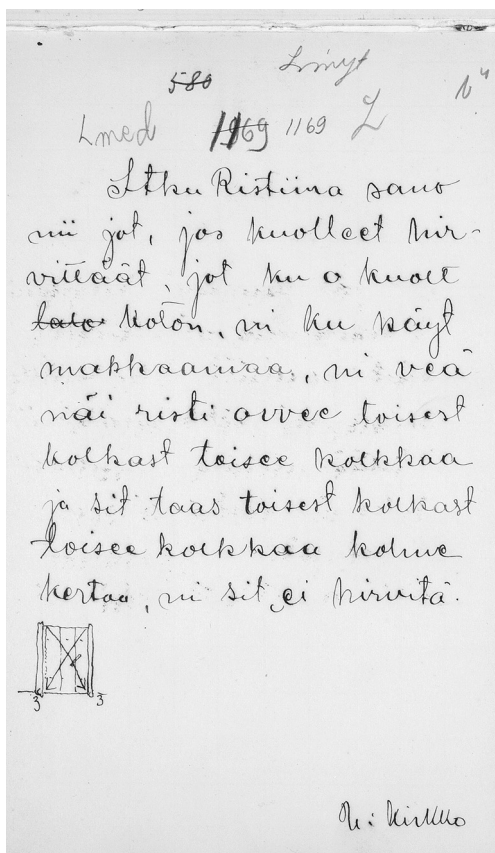 580
Lmed 1169 1169
Itku Ristiina sano
nii jot, jos kuolleet hir-
vittäät, jot ku o kuolt
talo kotōn, ni ku käyt
makkaamaa, ni veä
näi risti ovvee toisest
kolkast toisee kolkkaa
ja sit taas toisest kolkast
toisee kolkkaa kolme
kertaa, ni sit ei hirvitä.
3 3
U: Kirkko